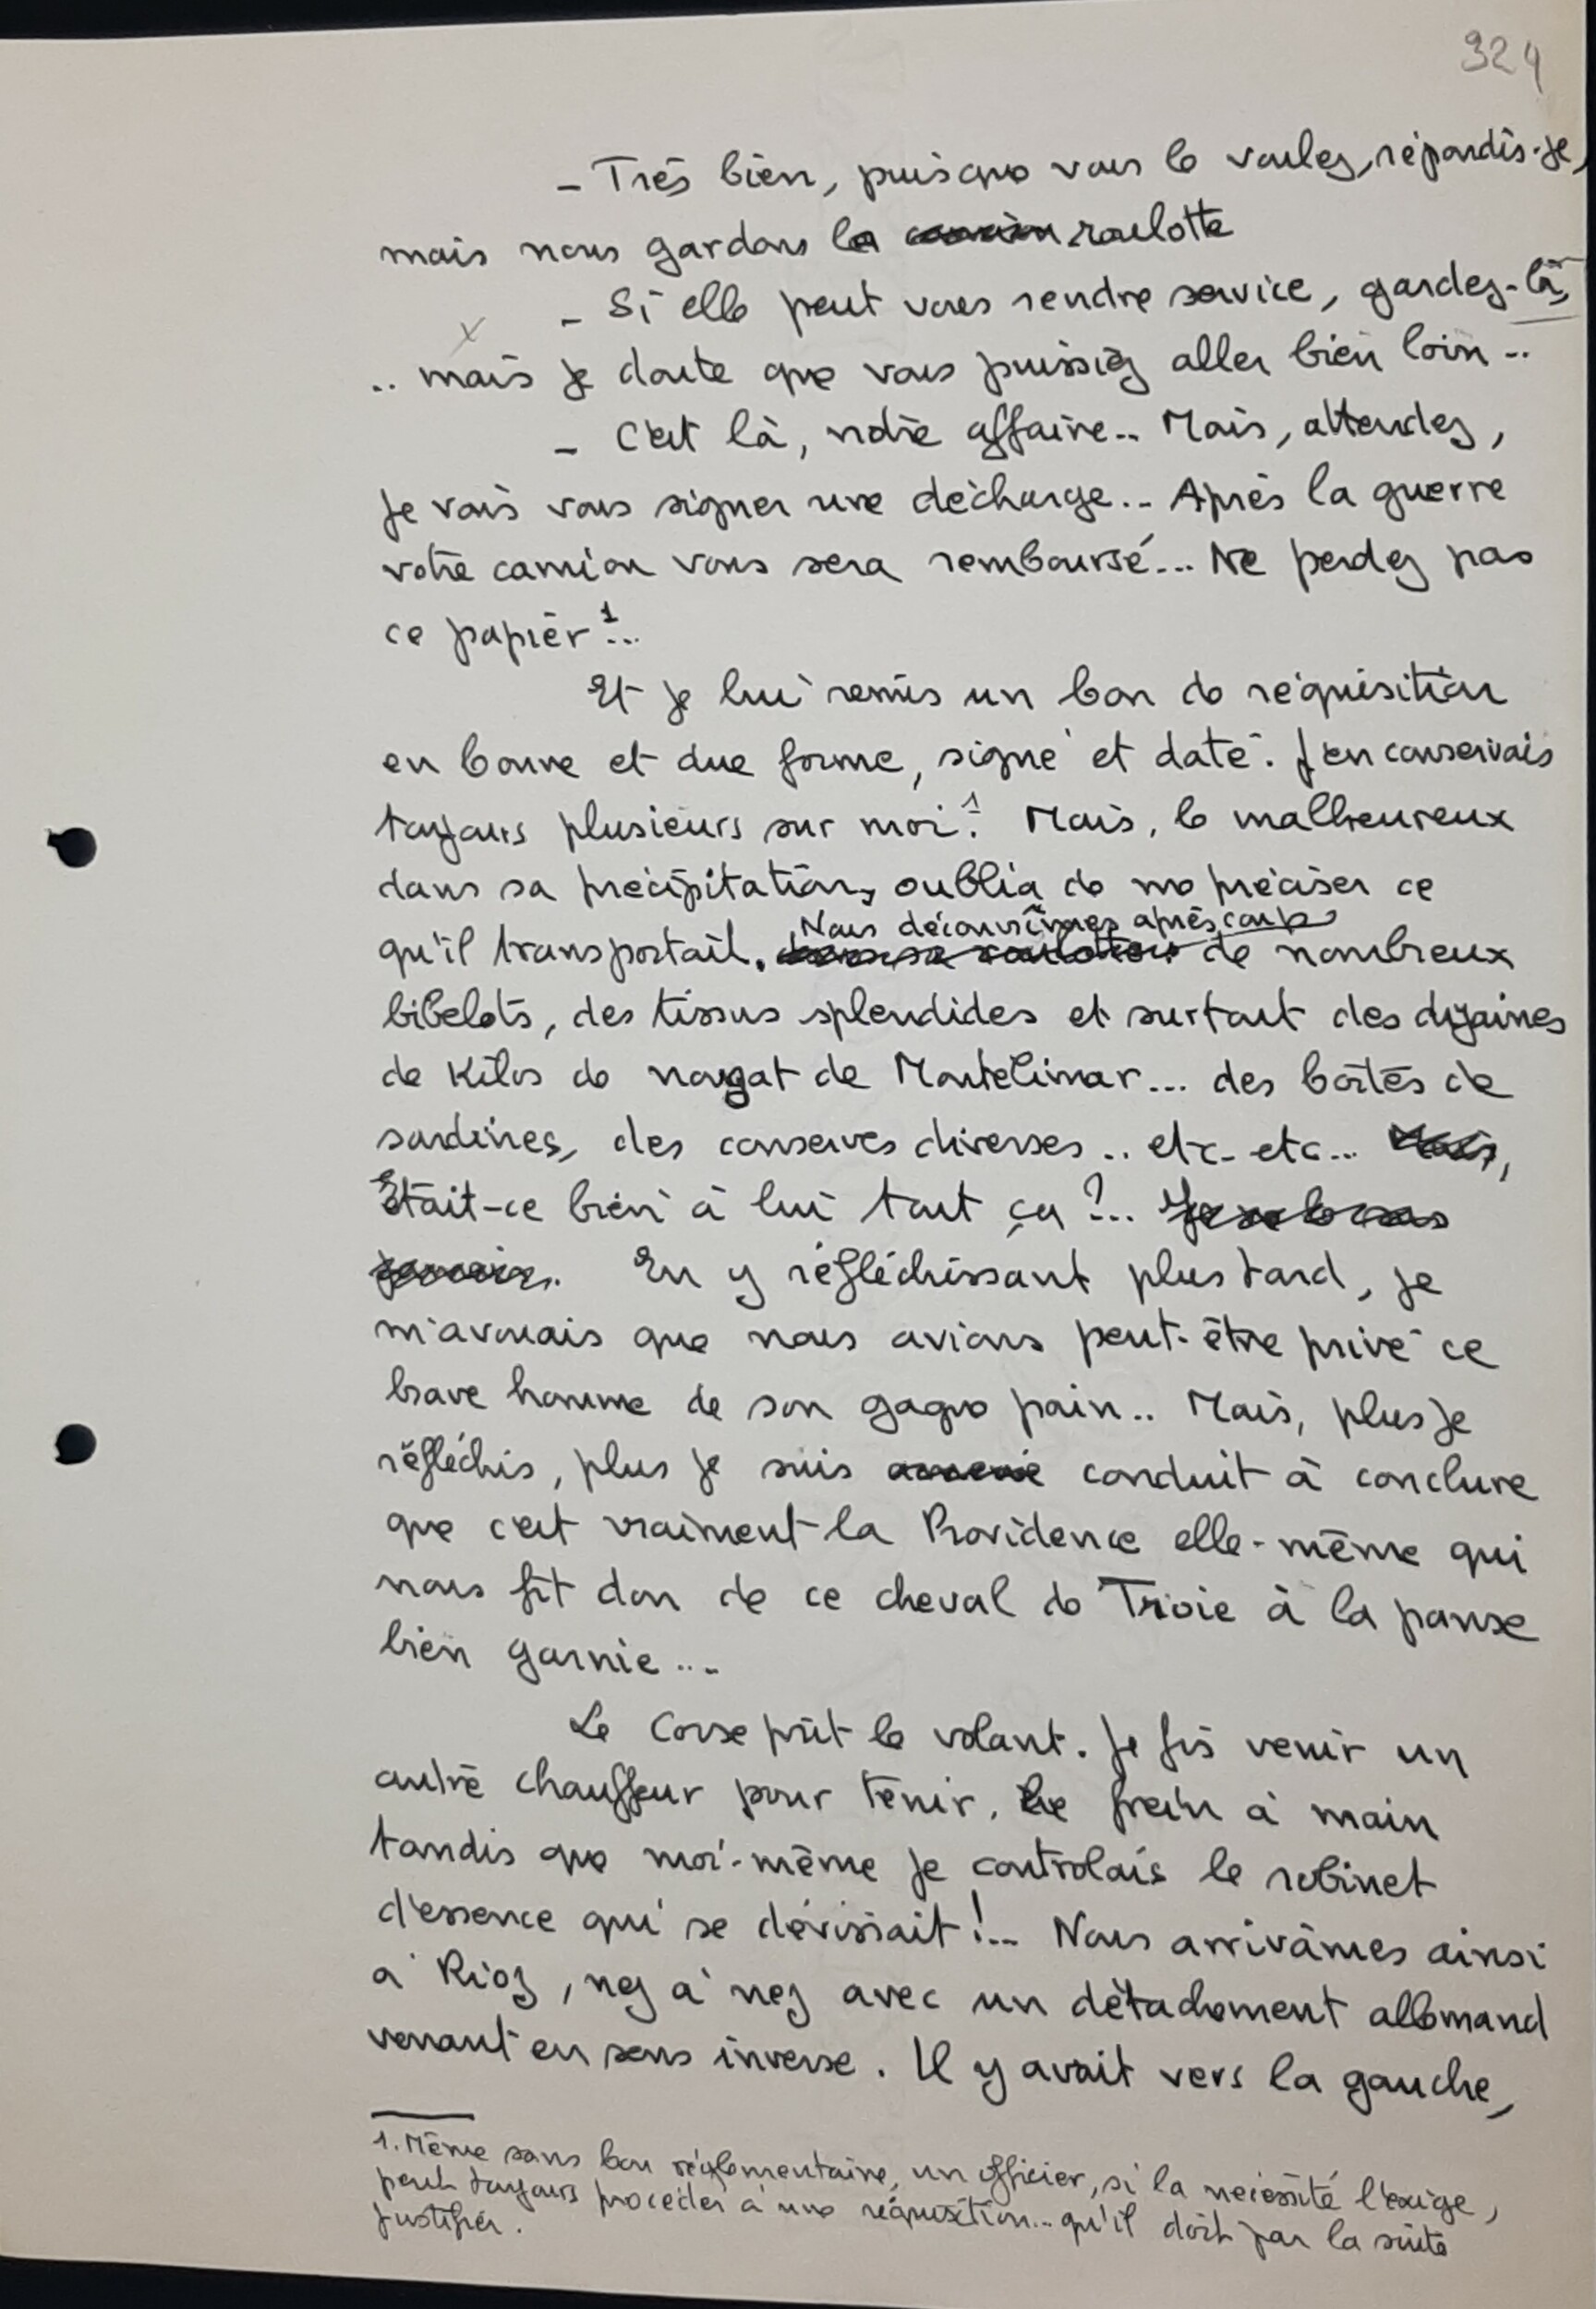 324
- Très bien, puisque vous le voulez, répondis-je,
mais nous gardons la camion roulotte
- Si elle peut vous rendre service, gardez-là,
.. mais je doute que vous puissiez aller bien loin ..
- C'est là, notre affaire.. Mais, attendez,
je vais vous signer une décharge... Après la guerre
votre camion vous sera remboursé... Ne perdez pas
ce papier 1...
Et je lui remis un bon de réquisition
en bonne et due forme, signé et daté. J'en conservais
toujours plusieurs sur moi 1. Mais, le malheureux
dans sa précipitation, oublia de me préciser ce
Nous découvrîmes après coup
qu'il transportait. de nombreux
bibelots, des tissus splendides et surtout des dizaines
de kilos de nougat de Montélimar... des boîtes de
sardines, des conserves diverses .. etc. etc... Mais,
Etait-ce bien à lui tout ça ?... Je ne le sus
jamais. En y réfléchissant plus tard, je
m'avouais que nous avions peut-être privé ce
brave homme de son gagne pain .. Mais, plus je
réfléchis, plus je suis amené conduit à conclure
que c'est vraiment la Providence elle-même qui
nous fit don de ce cheval de Troie à la panse
bien garnie ...
Le Corse prit le volant. Je fis venir un
autre chauffeur pour tenir, le frein à main
tandis que moi-même je contrôlais le robinet
d'essence qui se dévissait !... Nous arrivâmes ainsi
à Rioz, nez à nez avec un détachement allemand
venant en sens inverse. Il y avait vers la gauche,
1. Même sans bon réglementaire, un officier, si la nécessité l'exige,
peut toujours procéder à une réquisition... qu'il doit par la suite
justifier.